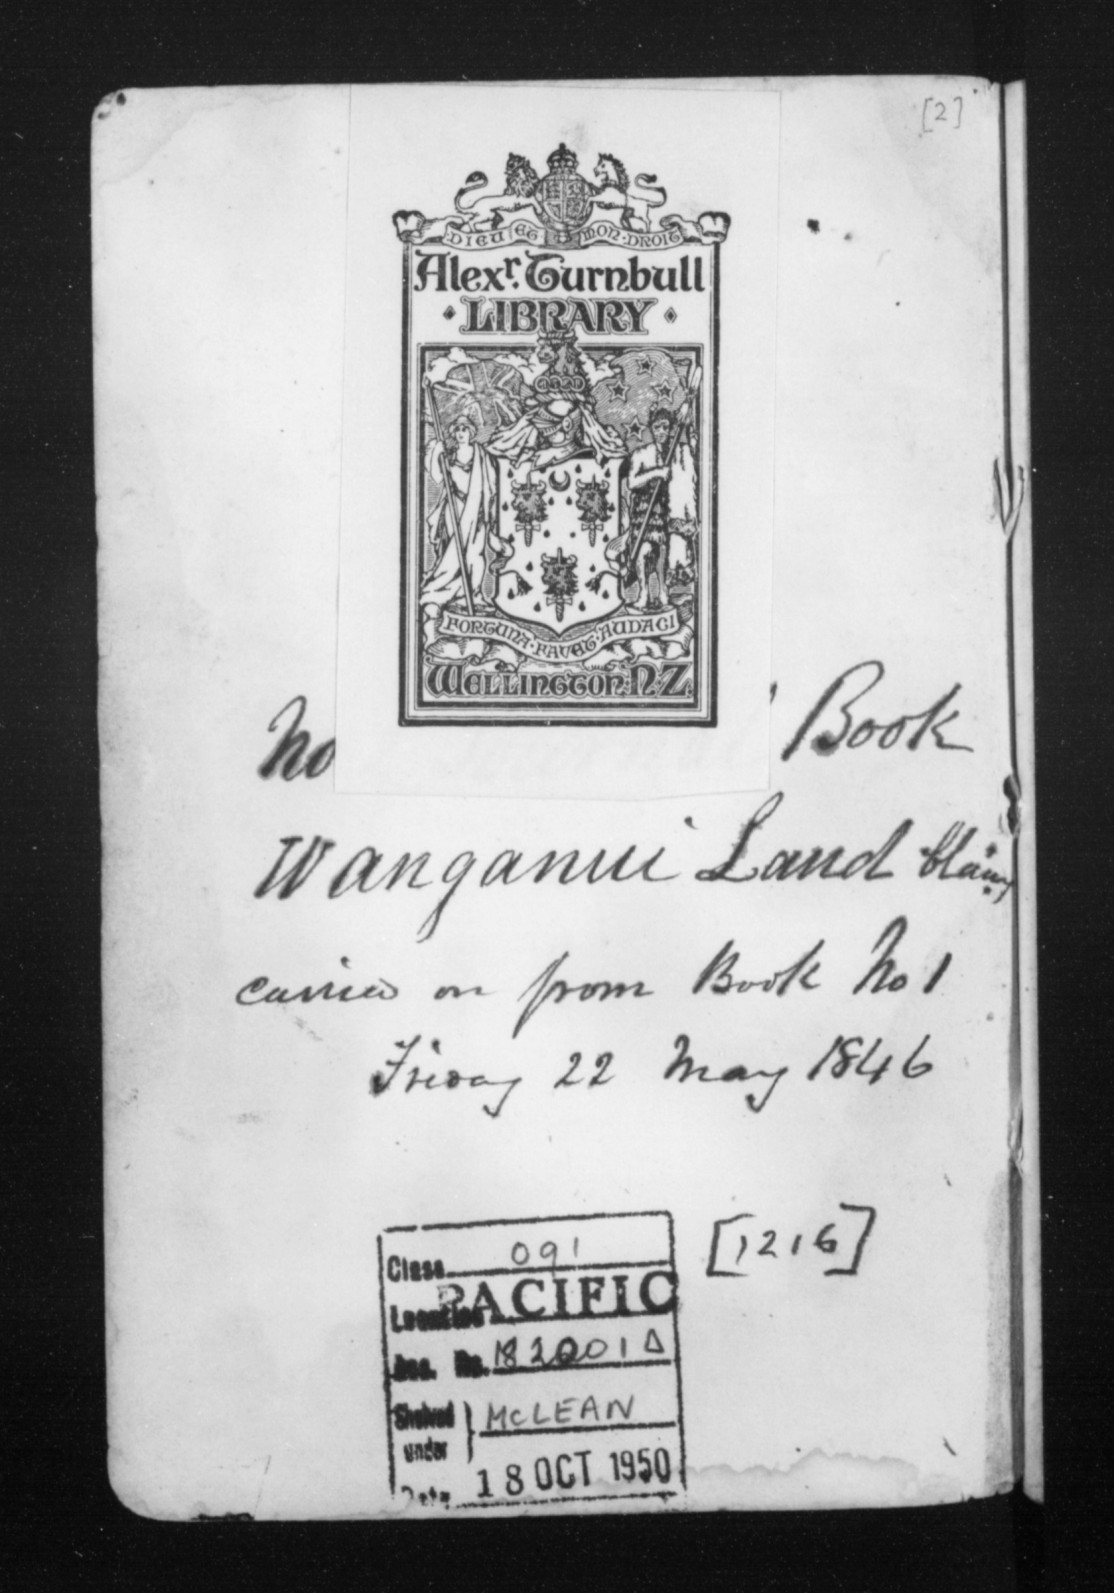 [2]
DIEU ET MON DROIT
Alexr. Turnbull
LIBRARY
FORTUNA · FAVET · AUDACI
WELLINGTON · N·Z.
No Book
Wanganui Land Claims
carried on from Book No 1
Friday 22 May 1846
[1216]
Class 091
Location PACIFIC
Acc. No. 182001 Δ
Shelved under } McLEAN
Date 18 OCT 1950